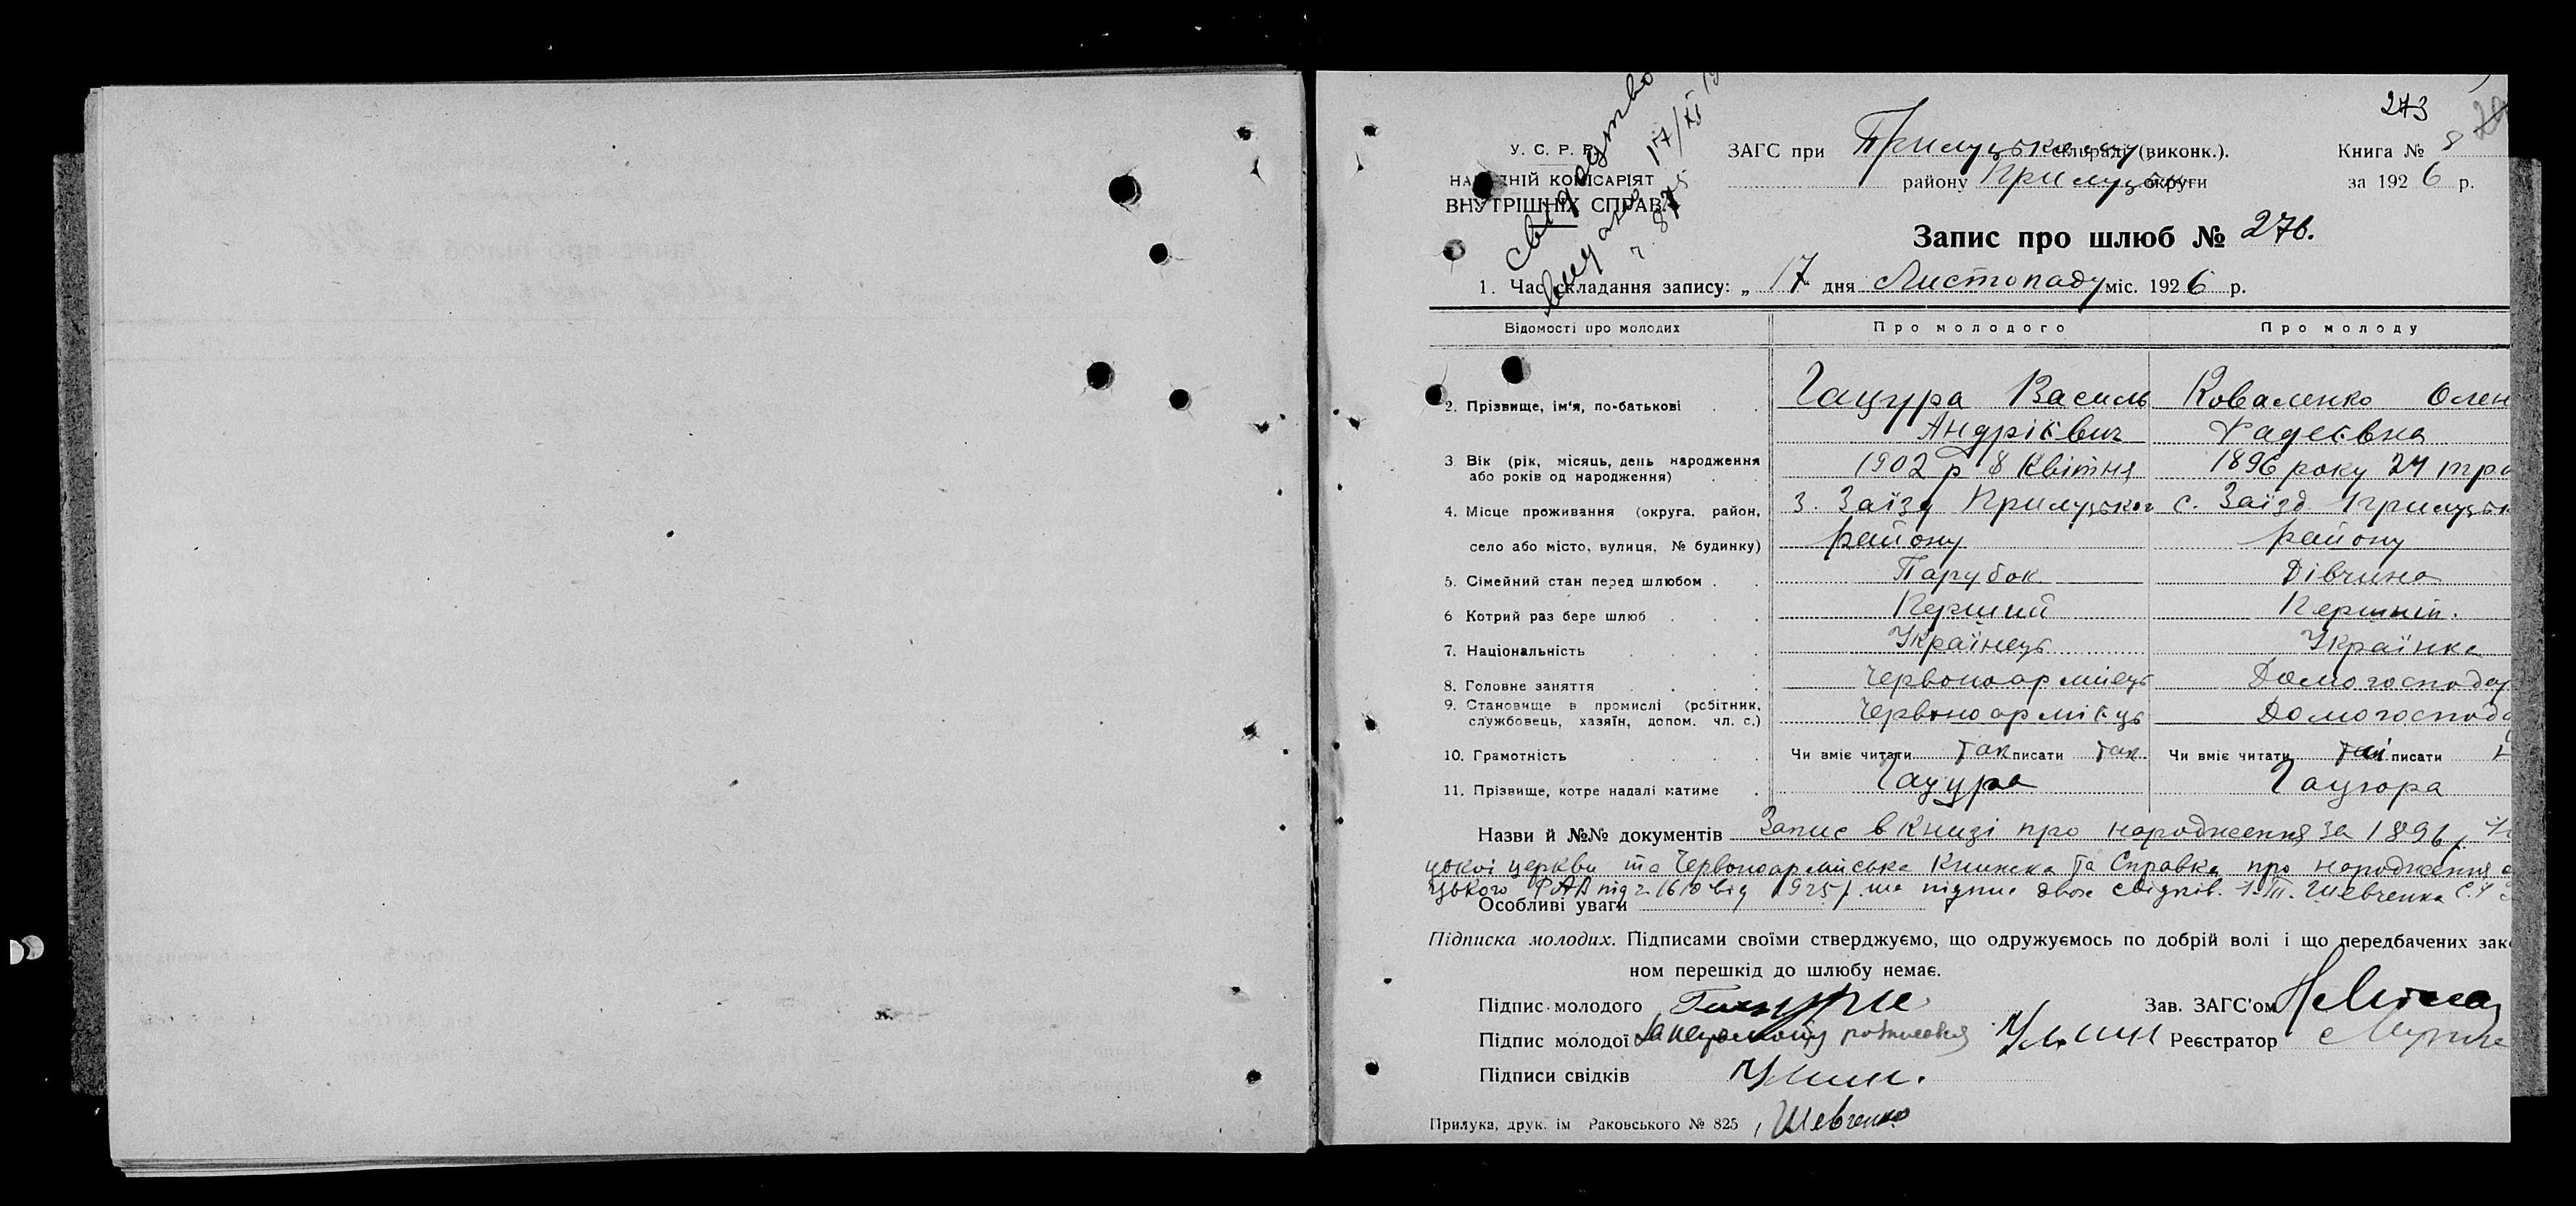 273
У. С. Р. Р.
НАРОДНІЙ КОМІСАРІЯТ
ВНУТРІШНІХ СПРАВ
Свідоцтво
видано 17/XI
ч. 875
ЗАГС при Прилуцькому сельраді (виконк.).
району Прилуцьк округи
Книга № 8
за 1926 р.
Запис про шлюб № 276.
1. Час складання запису: „ 17 дня Листопаду міс. 1926 р.
Відомості про молодих Про молодого Про молоду
2. Прізвище, ім'я, по-батькові Гацура Василь Коваленко Олен
Андрієвич Фадеєвна
3. Вік (рік, місяць, день народження 1902 р 8 Квітня 1896 року 24 тра
або років од народження)
4. Місце проживання (округа, район, З. Заїзд Прилуцьког с. Заїзд Прилуцьк
село або місто, вулиця, № будинку) району району
5. Сімейний стан перед шлюбом Парубок Дівчина
6 Котрий раз бере шлюб Перший Перший.
7. Національність Українець Українка
8. Головне заняття Червоноармієць Домогосподар
9. Становище в промислі (робітник, Червоноармієць Домогоспода
службовець, хазяїн, допом. чл. с.)
10. Грамотність Чи вміє читати так писати так Чи вміє читати так писати
11. Прізвище, котре надалі матиме Гацура Гацюра
Назви й №№ документів Запис в книзі про народження за 1896 р.
цької церкви та Червоноармійська книжка та Справка про народження
цького РАВ під ч. 1610 від 1925 р. та підпис двох свідків. 1. Т. Шевченка
Особливі уваги
Підписка молодих. Підписами своїми стверджуємо, що одружуємось по добрій волі і що передбачених зако
ном перешкід до шлюбу немає.
Підпис молодого Гацура Зав. ЗАГС'ом
Підпис молодої За неграмотну розписався Реєстратор
Підписи свідків
Шевченко
Прилука, друк. ім Раковського № 825